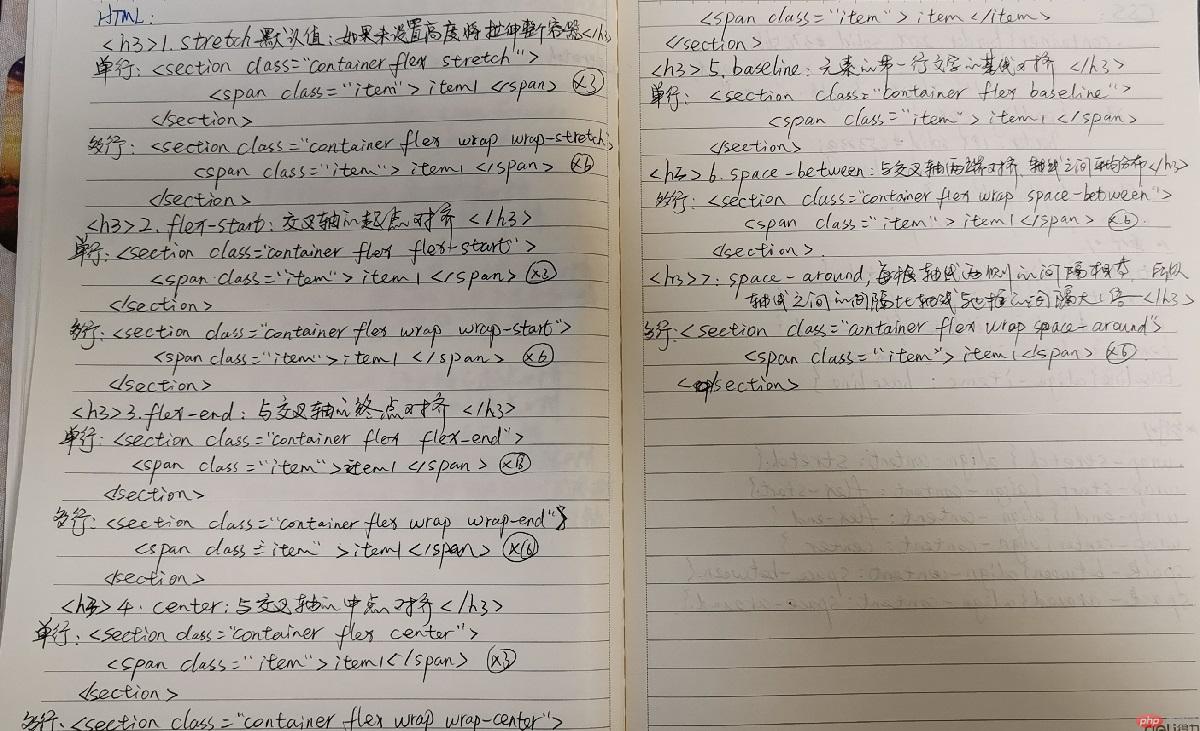 HTML:
<h3>1. stretch 默认值:如果未设置高度将拉伸整个容器</h3>
单行: <section class="container flex stretch">
<span class="item"> item1 </span> ×3
</section>
多行: <section class="container flex wrap wrap-stretch">
<span class="item"> item1 </span> ×6
</section>
<h3>2. flex-start: 交叉轴的起点对齐 </h3>
单行: <section class="container flex flex-start">
<span class="item"> item1 </span> ×3
</section>
多行: <section class="container flex wrap wrap-start">
<span class="item"> item1 </span> ×6
</section>
<h3>3. flex-end: 与交叉轴的终点对齐 </h3>
单行: <section class="container flex flex-end">
<span class="item"> item1 </span>
</section>
多行: <section class="container flex wrap wrap-end">
<span class="item"> item1 </span> ×6
</section>
<h3>4. center: 与交叉轴的中点对齐 </h3>
单行: <section class="container flex center">
<span class="item"> item1 </span> ×3
</section>
多行: <section class="container flex wrap wrap-center">
<span class="item"> item </item>
</section>
<h3>5. baseline: 元素的第一行文字的基线对齐 </h3>
单行: <section class="container flex baseline">
<span class="item"> item1 </span>
</section>
<h3>6. space-between: 与交叉轴两端对齐,轴线之间平均分布</h3>
多行: <section class="container flex wrap space-between">
<span class="item"> item1 </span> ×6.
</section>
<h3>7. space-around: 每根轴线两侧的间隔相等,所以
轴线之间的间隔比轴线与边框的间隔大1倍</h3>
多行: <section class="container flex wrap space-around">
<span class="item"> item1 </span> ×6
</section>
php